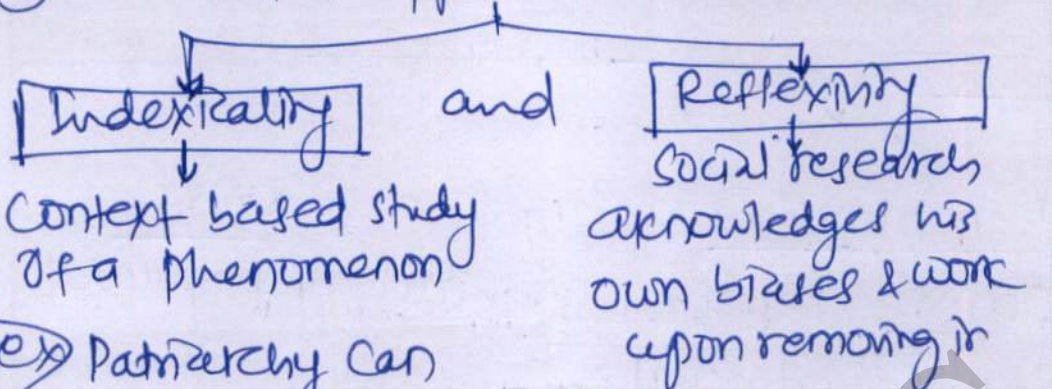 Indexicality and Reflexivity
Context based study
of a phenomenon
social research
acknowledges his
own biases & work
upon removing it
ex) Patriarchy can